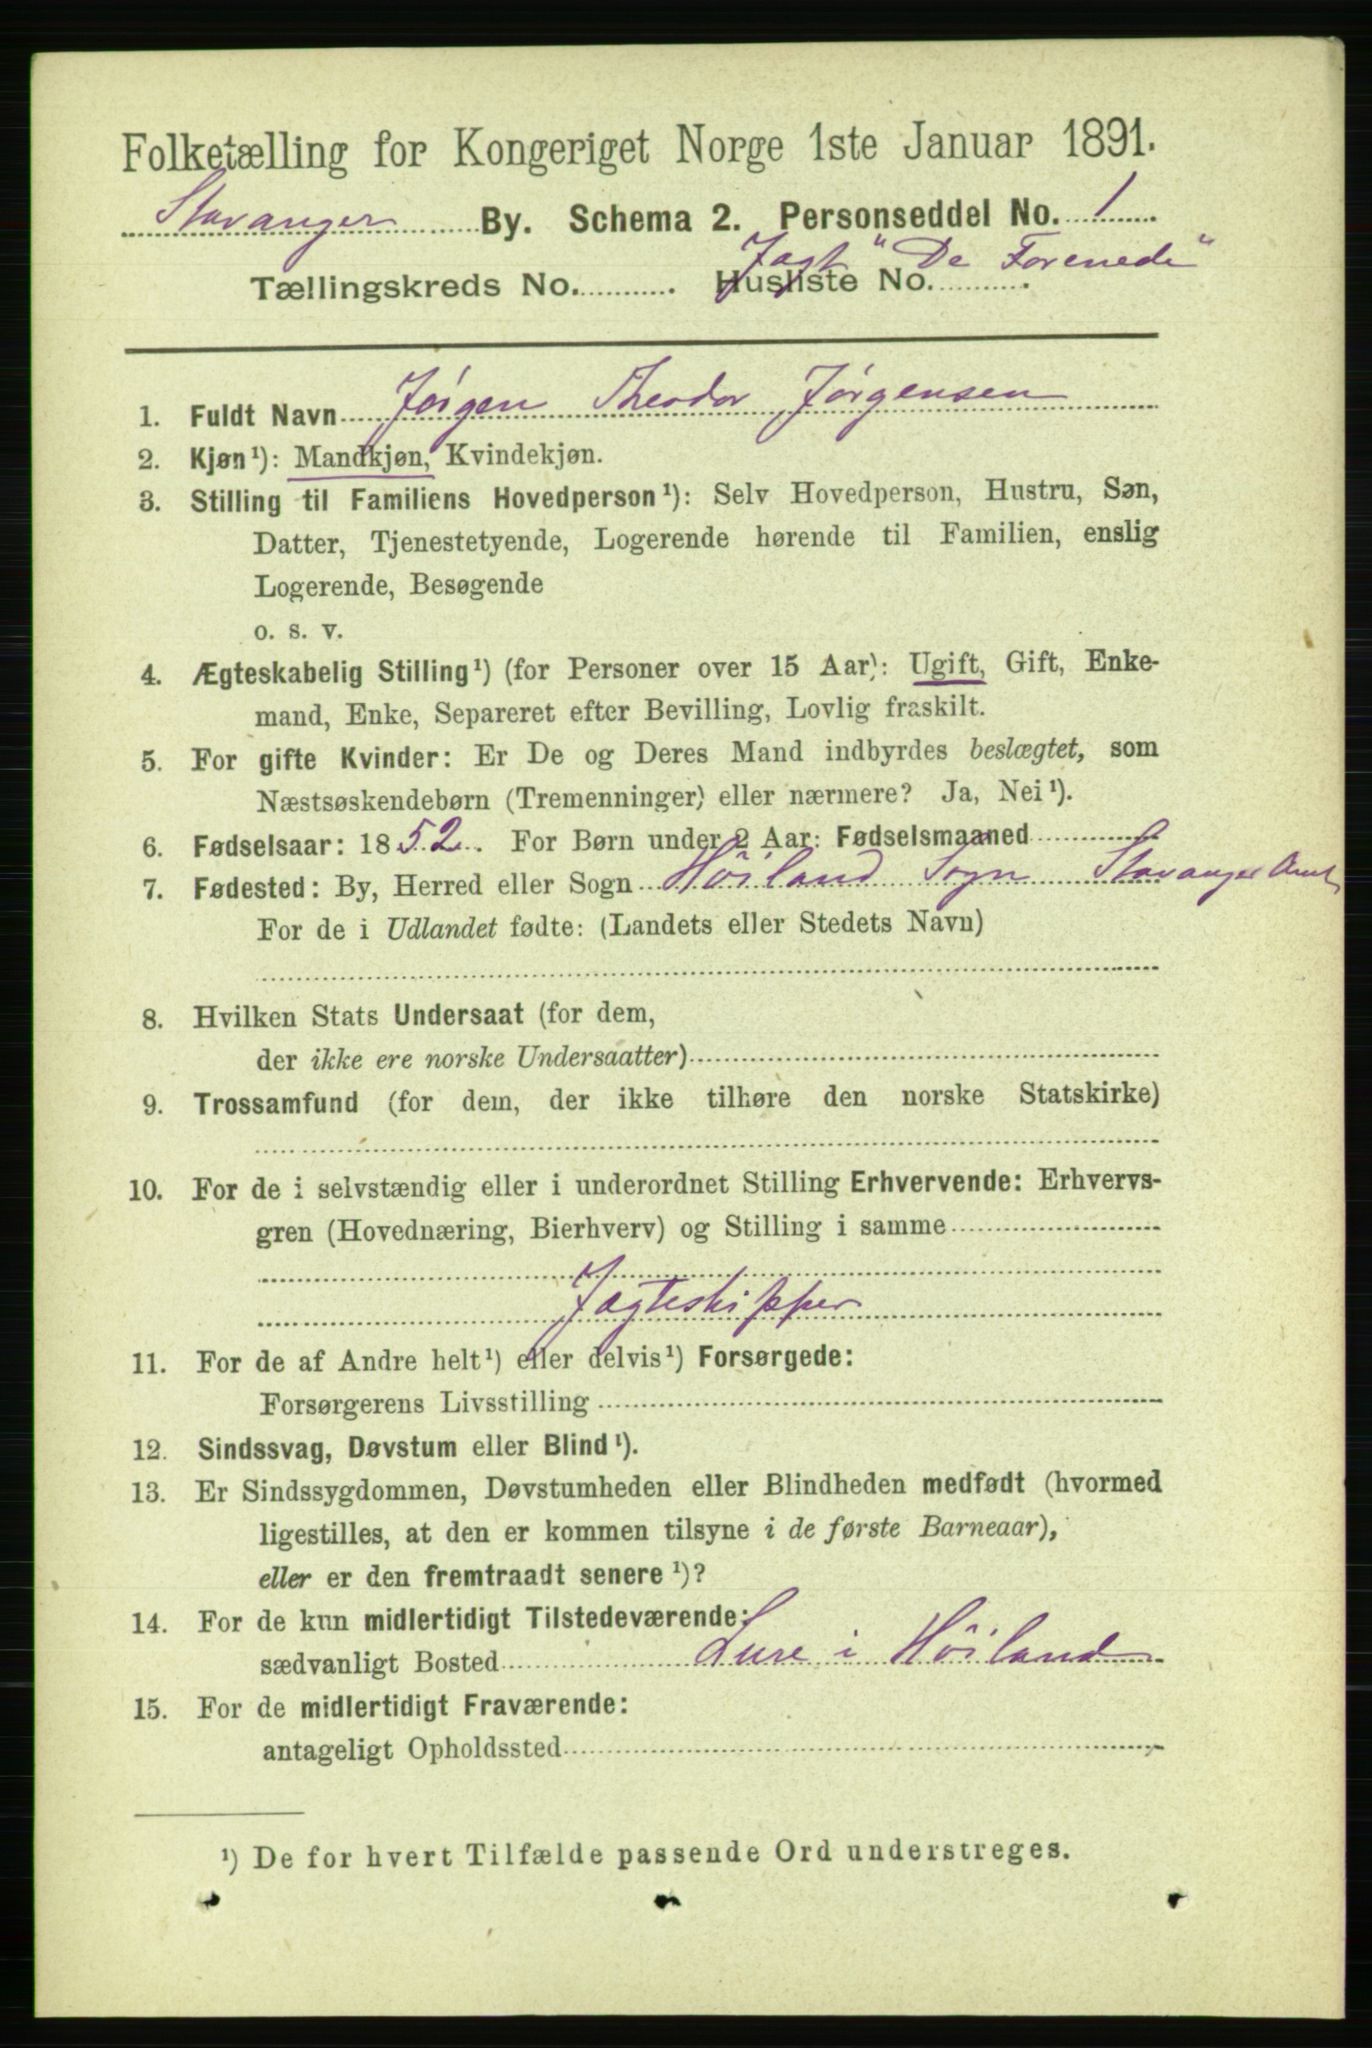 Folketælling for Kongeriget Norge 1ste Januar 1891.
Stavanger By. Schema 2. Personseddel No. 1
Jagt "De Forenede"
Tællingskreds No. Husliste No.
1. Fuldt Navn Jørgen Theodor Jørgensen
2. Kjøn¹): Mandkjøn, Kvindekjøn.
3. Stilling til Familiens Hovedperson¹): Selv Hovedperson, Hustru, Søn,
Datter, Tjenestetyende, Logerende hørende til Familien, enslig
Logerende, Besøgende
o. s. v.
4. Ægteskabelig Stilling¹) (for Personer over 15 Aar): Ugift, Gift, Enke-
mand, Enke, Separeret efter Bevilling, Lovlig fraskilt.
5. For gifte Kvinder: Er De og Deres Mand indbyrdes beslægtet, som
Næstsøskendebørn (Tremenninger) eller nærmere? Ja, Nei¹).
6. Fødselsaar: 1852. For Børn under 2 Aar: Fødselsmaaned
7. Fødested: By, Herred eller Sogn Höiland Sogn Stavanger Amt
For de i Udlandet fødte: (Landets eller Stedets Navn)
8. Hvilken Stats Undersaat (for dem,
der ikke ere norske Undersaatter)
9. Trossamfund (for dem, der ikke tilhøre den norske Statskirke)
10. For de i selvstændig eller i underordnet Stilling Erhvervende: Erhvervs-
gren (Hovednæring, Bierhverv) og Stilling i samme
Jagteskipper
11. For de af Andre helt¹) eller delvis¹) Forsørgede:
Forsørgerens Livsstilling
12. Sindssvag, Døvstum eller Blind¹).
13. Er Sindssygdommen, Døvstumheden eller Blindheden medfødt (hvormed
ligestilles, at den er kommen tilsyne i de første Barneaar),
eller er den fremtraadt senere¹)?
14. For de kun midlertidigt Tilstedeværende:
sædvanligt Bosted Lure i Höiland
15. For de midlertidigt Fraværende:
antageligt Opholdssted
¹) De for hvert Tilfælde passende Ord understreges.